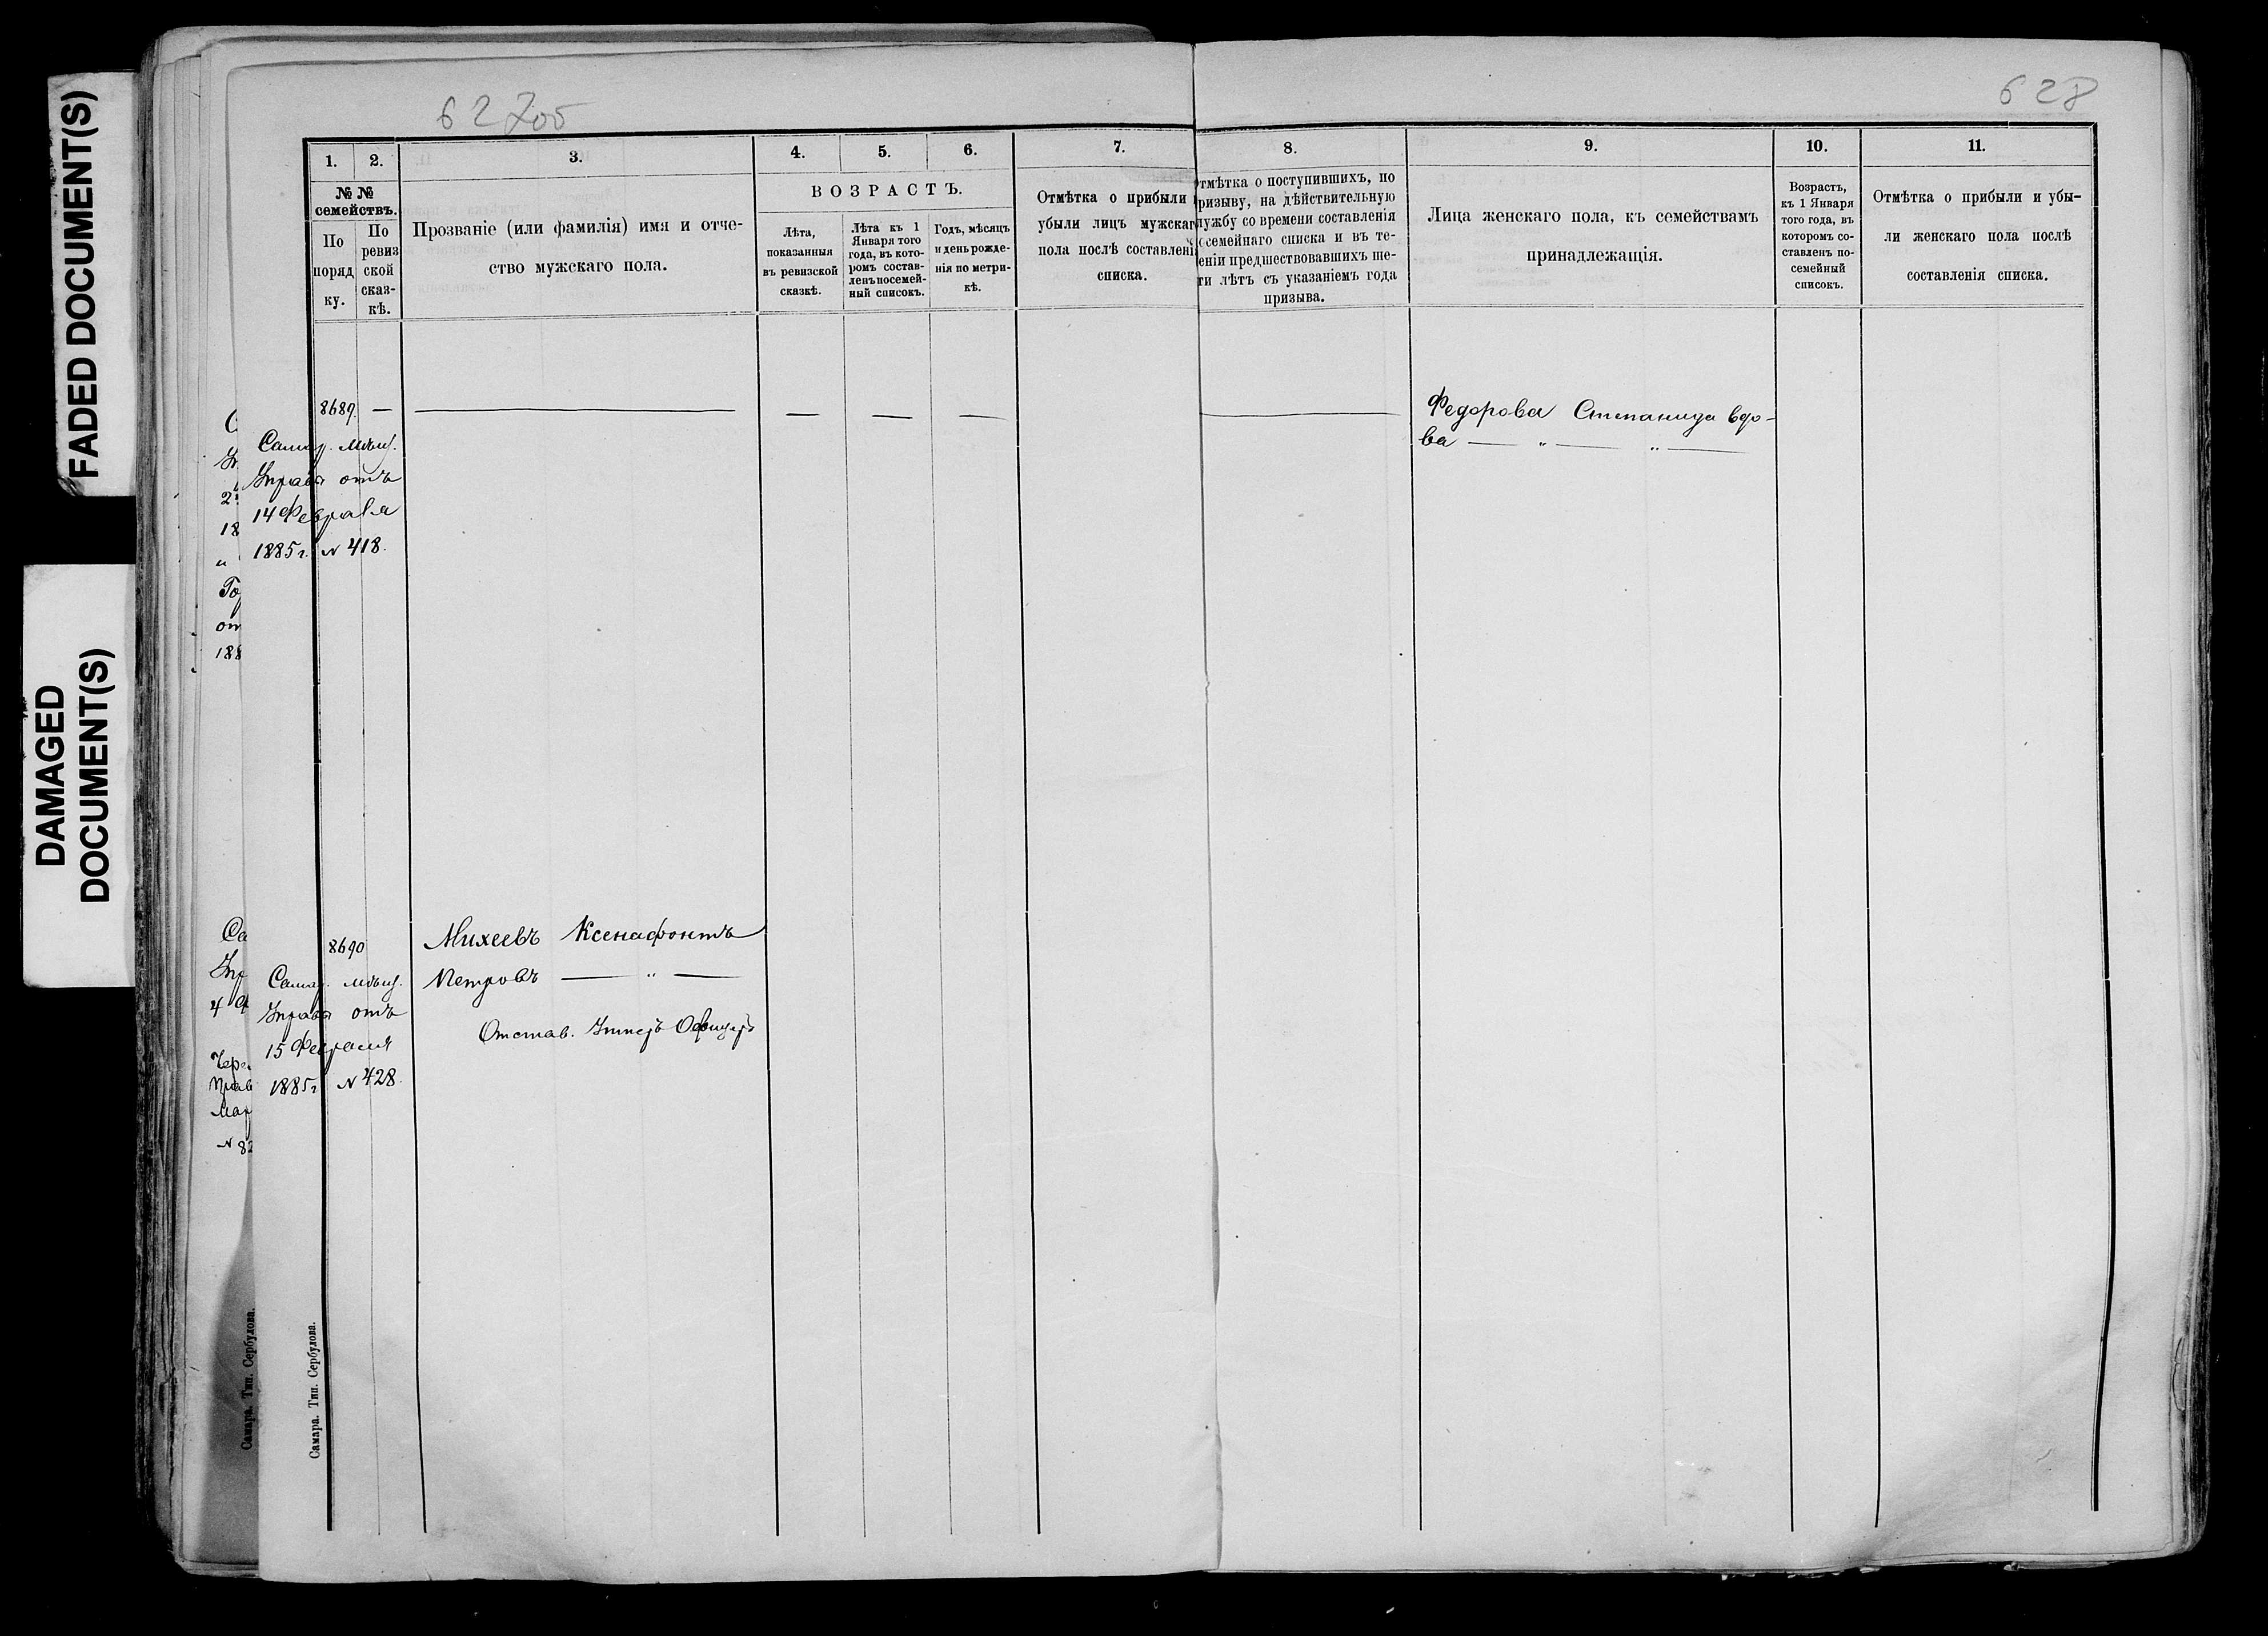 FADED DOCUMENT(S)
DAMAGED
DOCUMENT(S)
627об
628
1.
2.
3.
4.
5.
6.
7.
8.
9.
10.
11.
№ №
семействъ.
По
поряд
ку.
По
ревиз
ской
сказ-
кѣ.
Прозваніе (или фамилія) имя и отче-
ство мужскаго пола.
ВОЗРАСТЪ.
Лѣта,
показанныя
въ ревизской
сказкѣ.
Лѣта къ 1
Января того
года, въ кото-
ромъ состав-
ленъ посемей-
ный списокъ.
Годъ, мѣсяцъ
и день рожде-
нія по метри-
кѣ.
Отмѣтка о прибыли
убыли лицъ мужскаг
пола послѣ составлені
списка.
тмѣтка о поступившихъ, по
ризыву, на дѣйствительную
лужбу со времени составленія
осемейнаго списка и въ те-
еніи предшествовавшихъ ше-
ти лѣтъ съ указаніемъ года
призыва.
Лица женскаго пола, къ семействамъ
принадлежащія.
Возрастъ,
къ 1 Января
того года, въ
которомъ со-
ставленъ по-
семейный
списокъ.
Отмѣтка о прибыли и убы-
ли женскаго пола послѣ
составленія списка.
8689. —
Самар. Мѣщ.
Управы отъ
14 Февраля
1885 г. № 418.
Федорова Степанида вдо-
ва — " — " —
8690
Самар. Мѣщ.
Управы отъ
15 Февраля
1885 г № 428.
Михеевъ Ксенафонтъ
Петровъ — " —
Отстав. Унтеръ Офицеръ
Самара. Тип. Сербулова.
Самара. Тип. Сербулова.